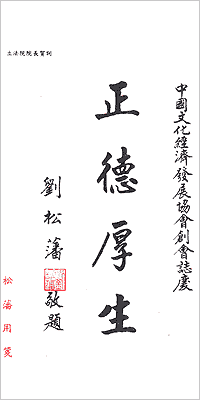 中國文化經濟發展協會創會誌慶
正德厚生
劉松藩敬題
立法院院長賀刋
松藩用箋